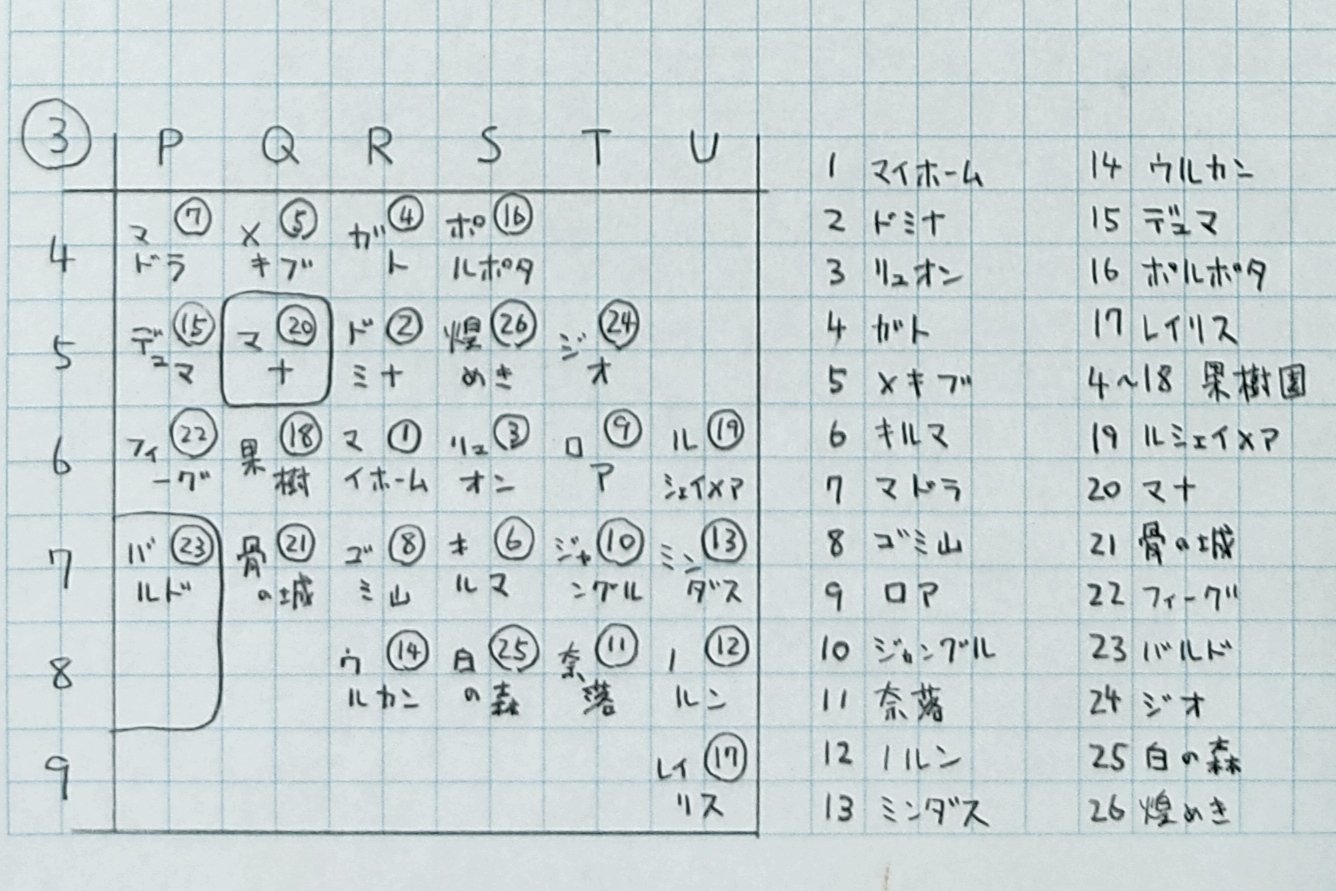 ③ P Q R S T U
4 マ⑦ メ⑤ ガ④ ポ⑯
ドラ キブ ト ルポタ
5 デュ⑮ マ⑳ ド② 煌㉖ ジ㉔
マ ナ ミナ めき オ
6 フィ㉒ 果⑱ マ① リュ③ ロ⑨ ル⑲
ーグ 樹 イホーム オン ア シェイメア
7 バ㉓ 骨㉑ ゴ⑧ キ⑥ ジャ⑩ ミン⑬
ルド の城 ミ山 ルマ ングル ダス
8 ウ⑭ 白㉕ 奈⑪ ノ⑫
ルカン の森 落 ルン
9 レイ⑰
リス
1 マイホーム
2 ドミナ
3 リュオン
4 ガト
5 メキブ
6 キルマ
7 マドラ
8 ゴミ山
9 ロア
10 ジャングル
11 奈落
12 ノルン
13 ミンダス
14 ウルカン
15 デュマ
16 ポルポタ
17 レイリス
4〜18 果樹園
19 ルシェイメア
20 マナ
21 骨の城
22 フィーグ
23 バルド
24 ジオ
25 白の森
26 煌めき